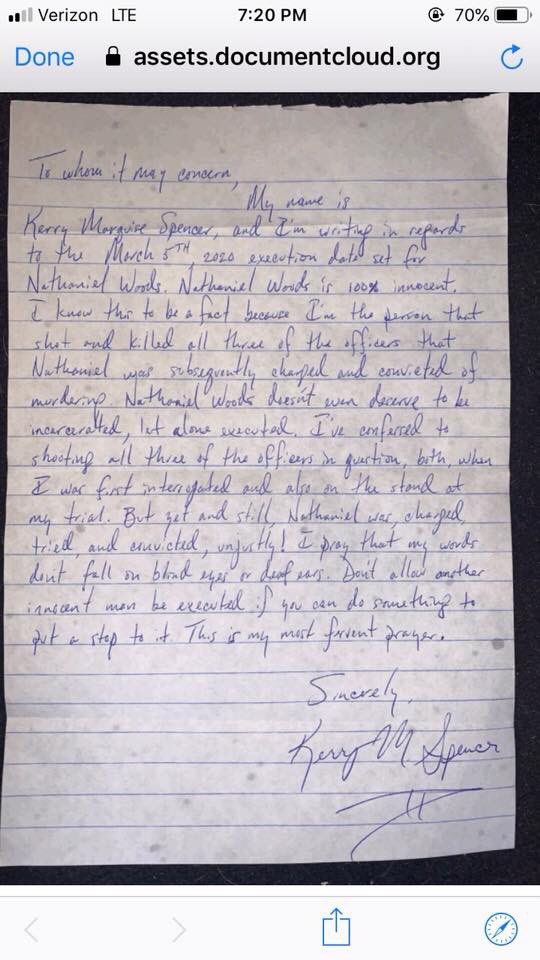 Verizon LTE 7:20 PM 70%
Done assets.documentcloud.org
To whom it may concern,
My name is
Kerry Marquise Spencer, and I'm writing in regards
to the March 5TH, 2020 execution date set for
Nathaniel Woods. Nathaniel Woods is 100% innocent.
I know this to be a fact because I'm the person that
shot and killed all three of the officers that
Nathaniel was subsequently charged and convicted of
murdering. Nathaniel Woods doesn't even deserve to be
incarcerated, let alone executed. I've confessed to
shooting all three of the officers in question, both, when
I was first interogated and also on the stand at
my trial. But yet and still, Nathaniel was, charged,
tried, and convicted, unjustly! I pray that my words
don't fall on blind eyes or deaf ears. Don't allow another
innocent man be executed if you can do something to
put a stop to it. This is my most fervent prayer.
Sincerely,
Kerry M. Spencer